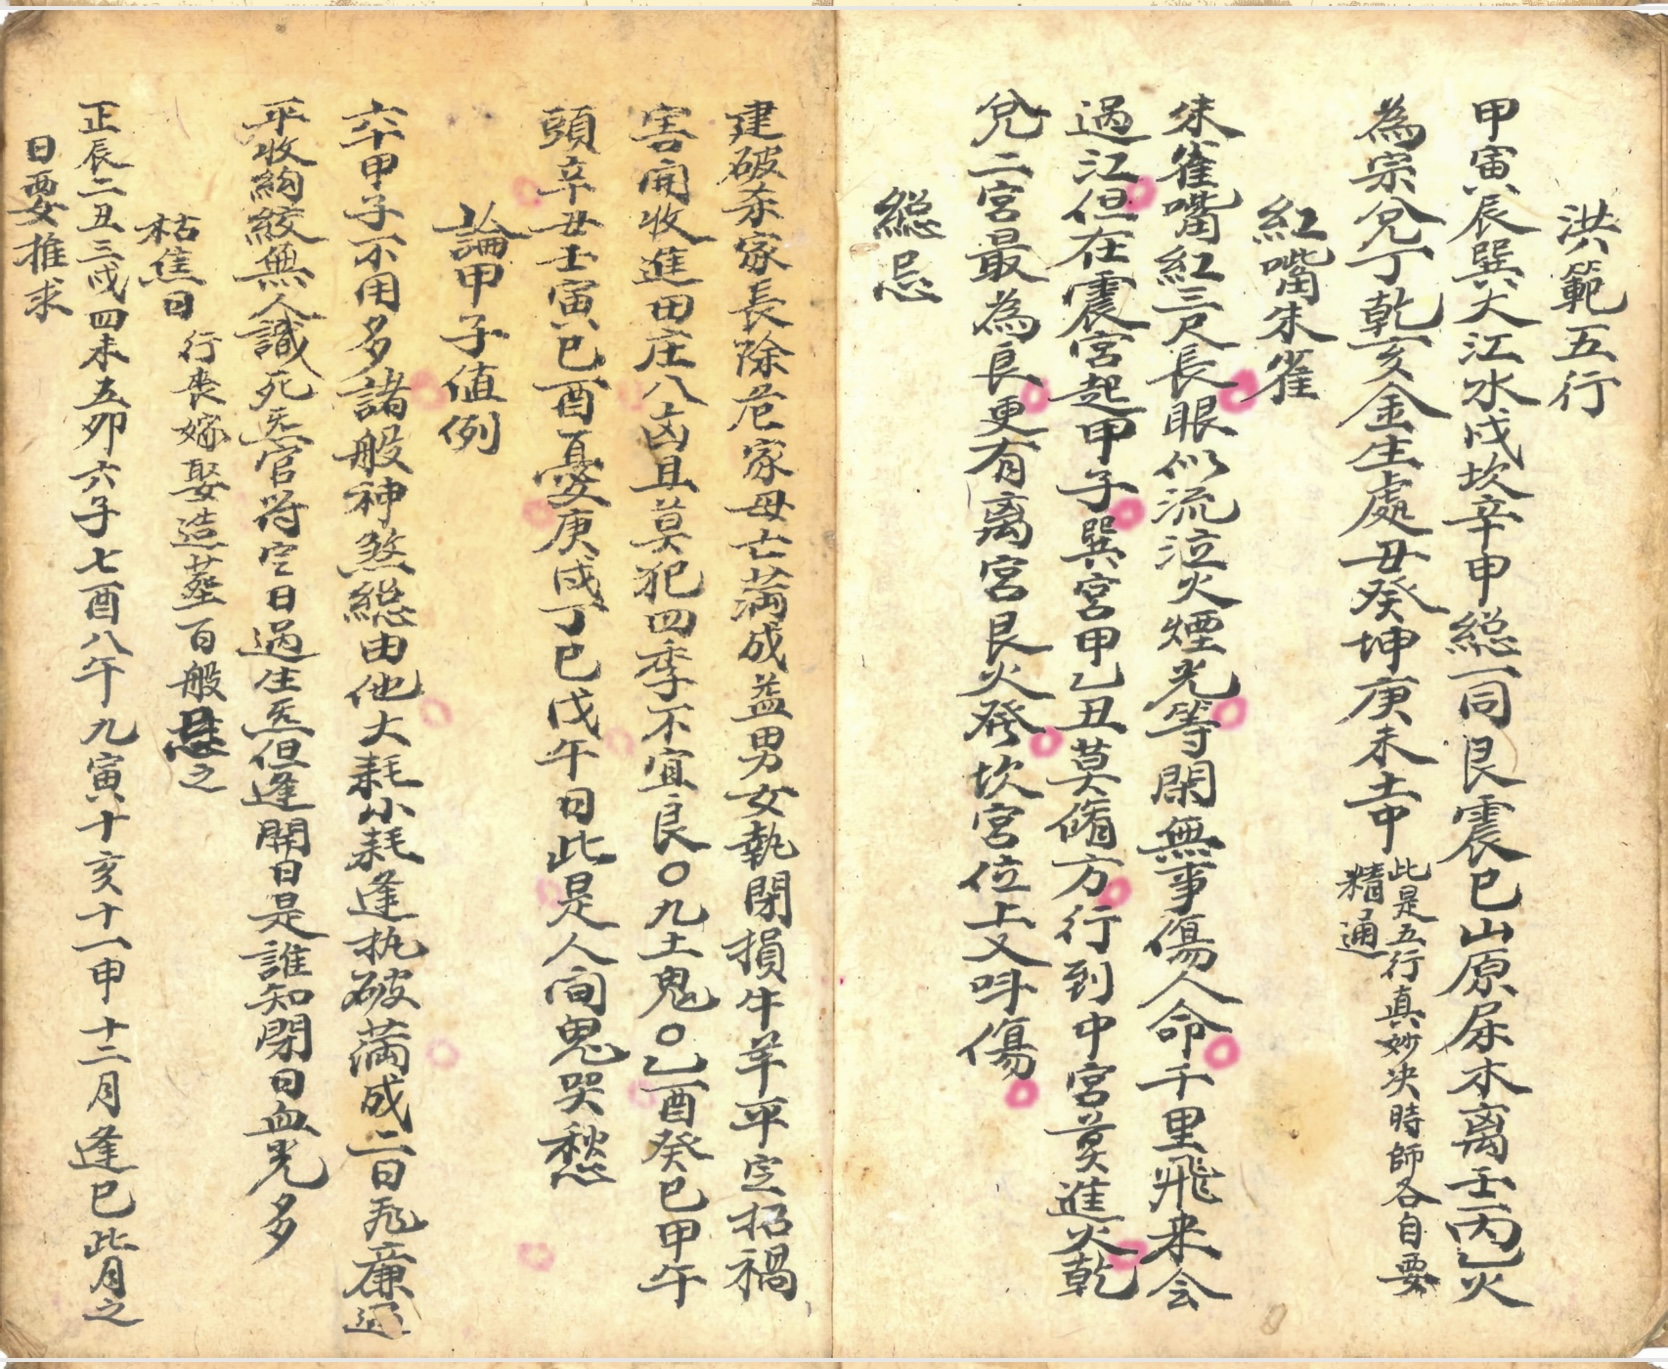 洪範五行
甲寅辰巽大江水戌坎辛申総一同艮震巳山原屬木离壬丙乙火
為宗兌丁乾亥金生處丑癸坤庚未土中
此是五行真妙决時師各自要
精通
紅嘴朱雀
朱雀嘴紅三尺長眼似流泣火煙光等閑無事傷人命千里飛来会
過江但在震宮起甲子巽宮甲乙丑莫脩方行到中宮莫進火乾
兌二宮最為良更有离宮艮火発坎宮位上又呌傷
総忌
建破杀家長除危家母亡満成益男女執閉損牛羊平定招禍
害開收進田庄八凶且莫犯四季不宜良〇九土鬼〇乙酉癸巳甲午
頭辛丑壬寅巳酉憂庚戌丁巳戊午日此是人间鬼哭愁
論甲子値例
六甲子不用多諸般神煞総由他大耗小耗逢执破満成二日
平收絢絞無人識死炁官符定日過生炁但逢開日是誰知閉日血光多
枯焦日
行喪嫁娶造塟百般忌之
正辰二丑三戌四未五卯六子七酉八午九寅十亥十一申十二月逢巳此月之
日要推求